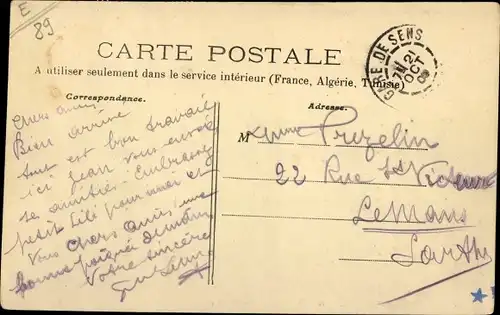 E
89
CARTE POSTALE
A utiliser seulement dans le service intérieur (France, Algérie, Tunisie)
GARE DE SENS
21
OCT
Correspondance.
Adresse.
Chers amis
Bien arrivé
tout est bon travail
ici Jean vous envoie
se amitiés. Embrassez
petit Lilé pour moi et
Vous chers amis, une
bonne poignée de main
Votre sincère
M Prezelin
22 Rue St Victeur
Le Mans
Sarthe